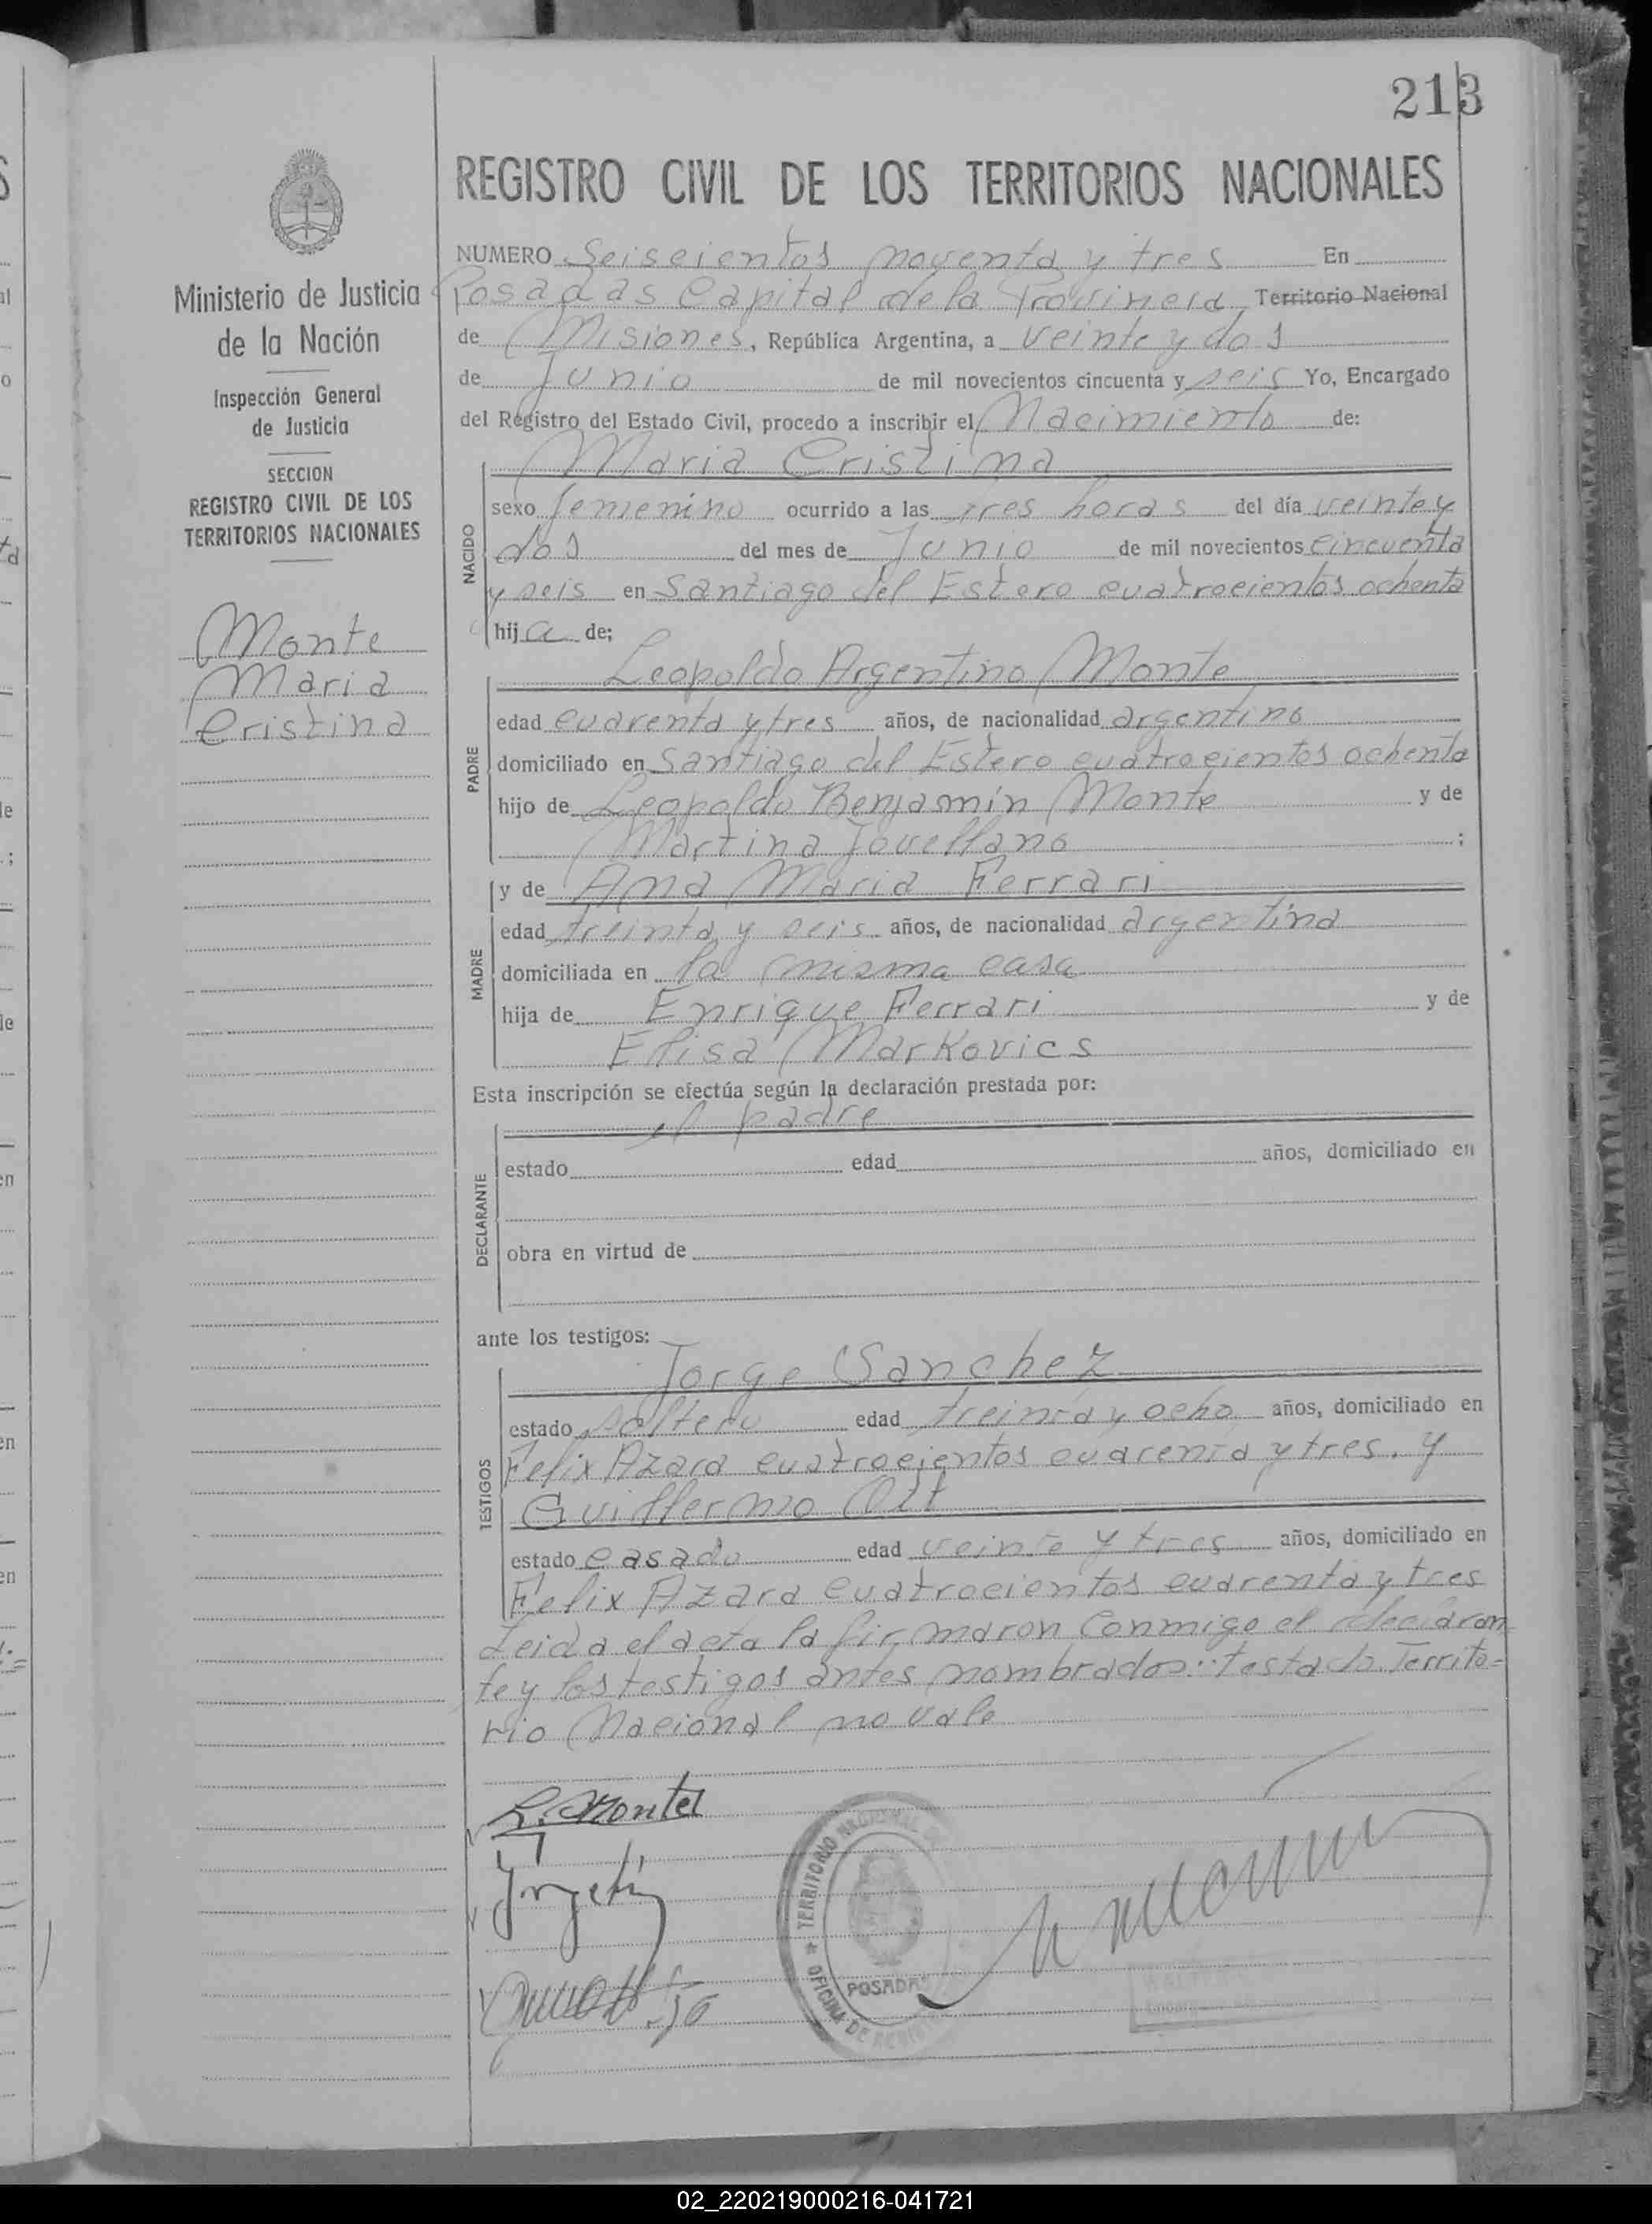 213
REGISTRO CIVIL DE LOS TERRITORIOS NACIONALES
Ministerio de Justicia
de la Nación
Inspección General
de Justicia
SECCION
REGISTRO CIVIL DE LOS
TERRITORIOS NACIONALES
Monte
Maria
Cristina
NUMERO Seiscientos noventa y tres En
Posadas Capital de la Provincia Territorio Nacional
de Misiones, República Argentina, a veinte y dos
de Junio de mil novecientos cincuenta y seis Yo, Encargado
del Registro del Estado Civil, procedo a inscribir el Nacimiento de:
Maria Cristina
NACIDO
sexo femenino ocurrido a las tres horas del día veinte y
dos del mes de Junio de mil novecientos cincuenta
y seis en Santiago del Estero cuatrocientos ochenta
hija de;
Leopoldo Argentino Monte
PADRE
edad cuarenta y tres años, de nacionalidad argentino
domiciliado en Santiago del Estero cuatrocientos ochenta
hijo de Leopoldo Benjamín Monte y de
Martina Jovellano ;
y de Ana Maria Ferrari
MADRE
edad treinta y seis años, de nacionalidad argentina
domiciliada en la misma casa
hija de Enrique Ferrari y de
Elisa Markovics
Esta inscripción se efectúa según la declaración prestada por:
el padre
DECLARANTE
estado edad años, domiciliado en
obra en virtud de
ante los testigos:
Jorge Sanchez
TESTIGOS
estado soltero edad treinta y ocho años, domiciliado en
Felix Azara cuatrocientos cuarenta y tres. y
Guillermo Ott
estado casado edad veinte y tres años, domiciliado en
Felix Azara cuatrocientos cuarenta y tres
Leida el acta la firmaron conmigo el declaran
te y los testigos antes nombrados: testado Territo=
rio Nacional no vale
L. Monte
TERRITORIO NACIONAL
OFICINA DE
POSADAS
02_220219000216-041721